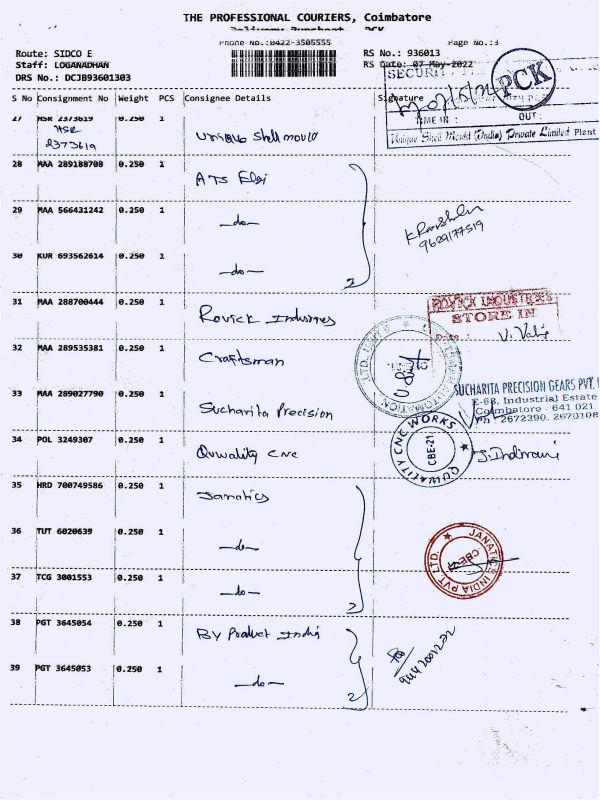 THE PROFESSIONAL COURIERS, Coimbatore
Delivery Runsheet PCK
Phone No.:0422-3505555 Page No.:3
Route: SIDCO E RS No.: 936013
Staff: LOGANADHAN RS Date: 07-May-2022
DRS No.: DCJB93601303
SECURITY
PCK
TIME IN : OUT :
Unique Shell Mould (India) Private Limited Plant
S No Consignment No Weight PCS Consignee Details Signature
27 HSR 2373619 0.250 1 Unique Shell mould
HSR
2373619
28 MAA 289188708 0.250 1 ATS Elgi
29 MAA 566431242 0.250 1 —do—
9629177519
30 KUR 693562614 0.250 1 —do— 2
31 MAA 288700444 0.250 1 Rovick Industries
ROVICK INDUSTRIES
STORE IN
Date :
32 MAA 289535381 0.250 1 Craftsman
AUTOMATION
33 MAA 289027790 0.250 1 Sucharita Precision
SUCHARITA PRECISION GEARS PVT.
E-68, Industrial Estate
Coimbatore - 641 021
Ph : 2672390, 2670108
34 POL 3249307 0.250 1 Quwality CNC
QUWALITY CNC WORKS
CBE-21
J. Indirani
35 HRD 700749586 0.250 1 Janatics
36 TUT 6020639 0.250 1 —do—
37 TCG 3001553 0.250 1 —do— 2
JANATICS INDIA PVT LTD.
38 PGT 3645054 0.250 1 By Product India
39 PGT 3645053 0.250 1 —do— 2